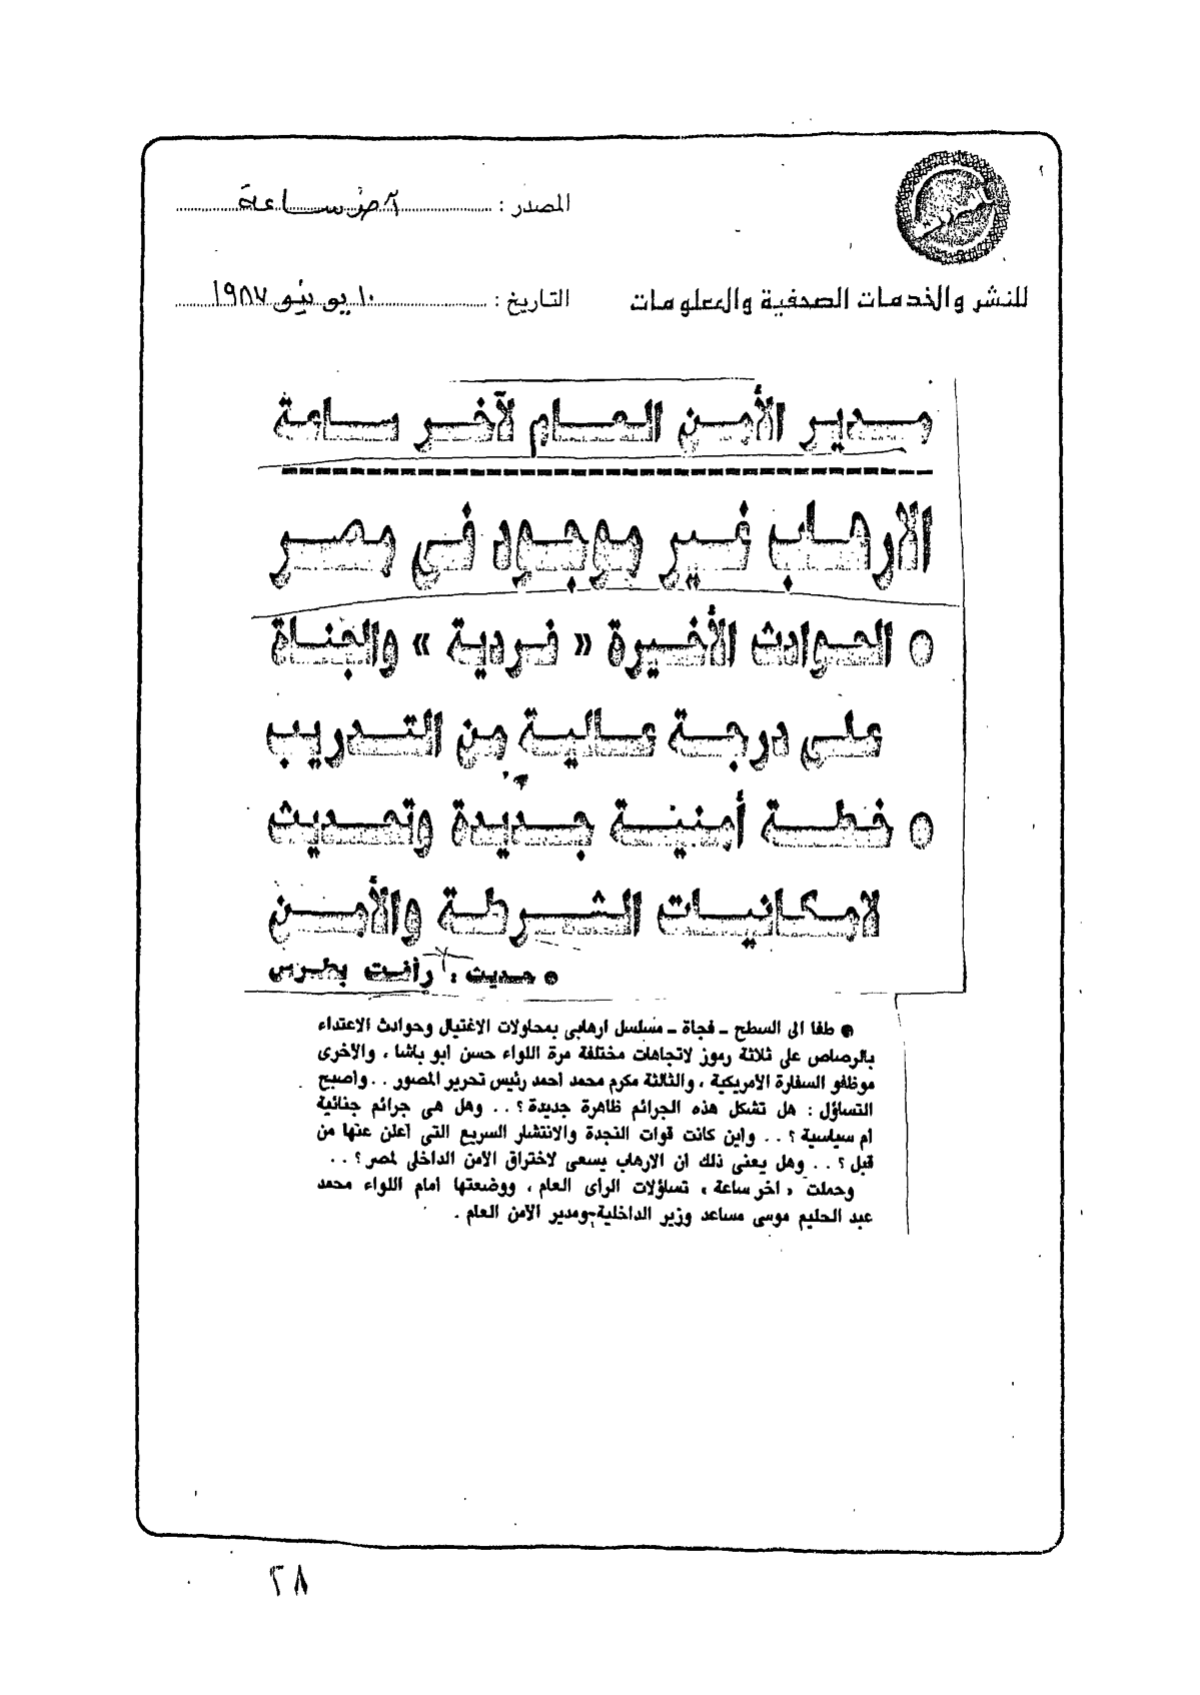 المصدر : آخر ساعة
للنشر والخدمات الصحفية والمعلومات
التاريخ : ١٠ يونيو ١٩٨٧
مدير الأمن العام لآخر ساعة
الارهاب غير موجود فى مصر
● الحوادث الأخيرة « فردية » والجناة
على درجة عالية من التدريب
● خطة أمنية جديدة وتحديث
لامكانيات الشرطة والأمن
● حديث : رأفت بطرس
● طفا الى السطح - فجاة - مسلسل ارهابى بمحاولات الاغتيال وحوادث الاعتداء
بالرصاص على ثلاثة رموز لاتجاهات مختلفة مرة اللواء حسن ابو باشا ، والاخرى
موظفو السفارة الامريكية ، والثالثة مكرم محمد احمد رئيس تحرير المصور . . واصبح
التساؤل : هل تشكل هذه الجرائم ظاهرة جديدة ؟ . . وهل هى جرائم جنائية
ام سياسية ؟ . . واين كانت قوات النجدة والانتشار السريع التى اعلن عنها من
قبل ؟ . . وهل يعنى ذلك ان الارهاب يسعى لاختراق الامن الداخلى لمصر ؟ . .
وحملت « اخر ساعة » تساؤلات الراى العام ، ووضعتها امام اللواء محمد
عبد الحليم موسى مساعد وزير الداخلية ومدير الامن العام .
٢٨